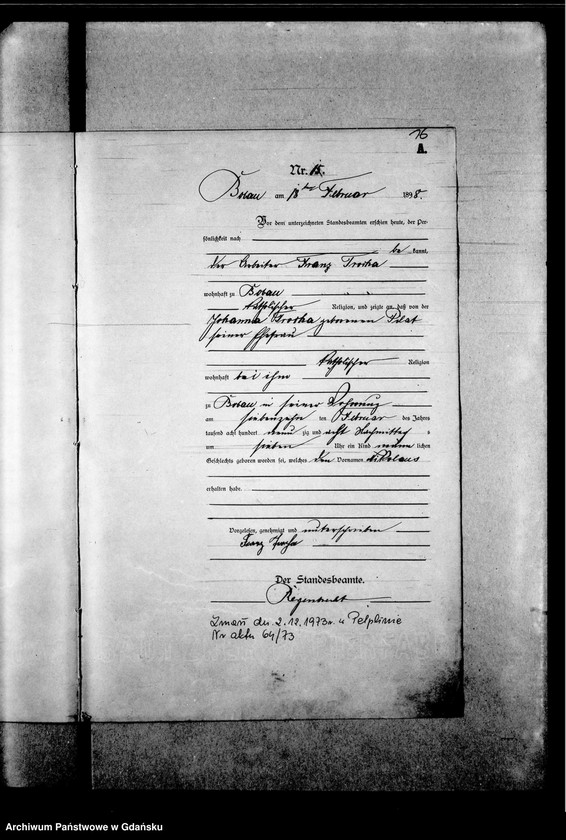 16
A.
Nr. 15.
Bobau am 18ten Februar 1898.
Vor dem unterzeichneten Standesbeamten erschien heute, der Per-
sönlichkeit nach
be kannt,
der Arbeiter Franz
wohnhaft zu Bobau
katholischer Religion, und zeigte an, daß von der
Johanna geborenen
seiner Ehefrau
katholischer Religion
wohnhaft bei ihm
zu Bobau in seiner Wohnung
am siebenzehn ten Februar des Jahres
tausend acht hundert neun zig und acht Nachmittag s
um sieben Uhr ein Kind männ lichen
Geschlechts geboren worden sei, welches den Vornamen Nikolaus
erhalten habe.
Vorgelesen, genehmigt und unterschrieben
Franz
Der Standesbeamte.
Zmarł dn. 2.12.1973r. w Pelplinie
Nr aktu 64/73
Archiwum Państwowe w Gdańsku